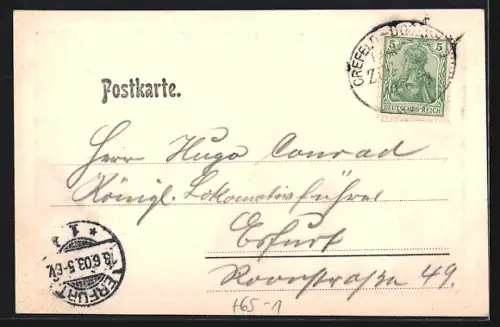 CREFELD
5 5
DEUTSCHES REICH
Postkarte.
Herrn Hugo Conrad
Königl. Lokomotivführer
Erfurt
Roonstraße 49.
* 1 *
6.03.5-6V.
ERFURT
+65-1